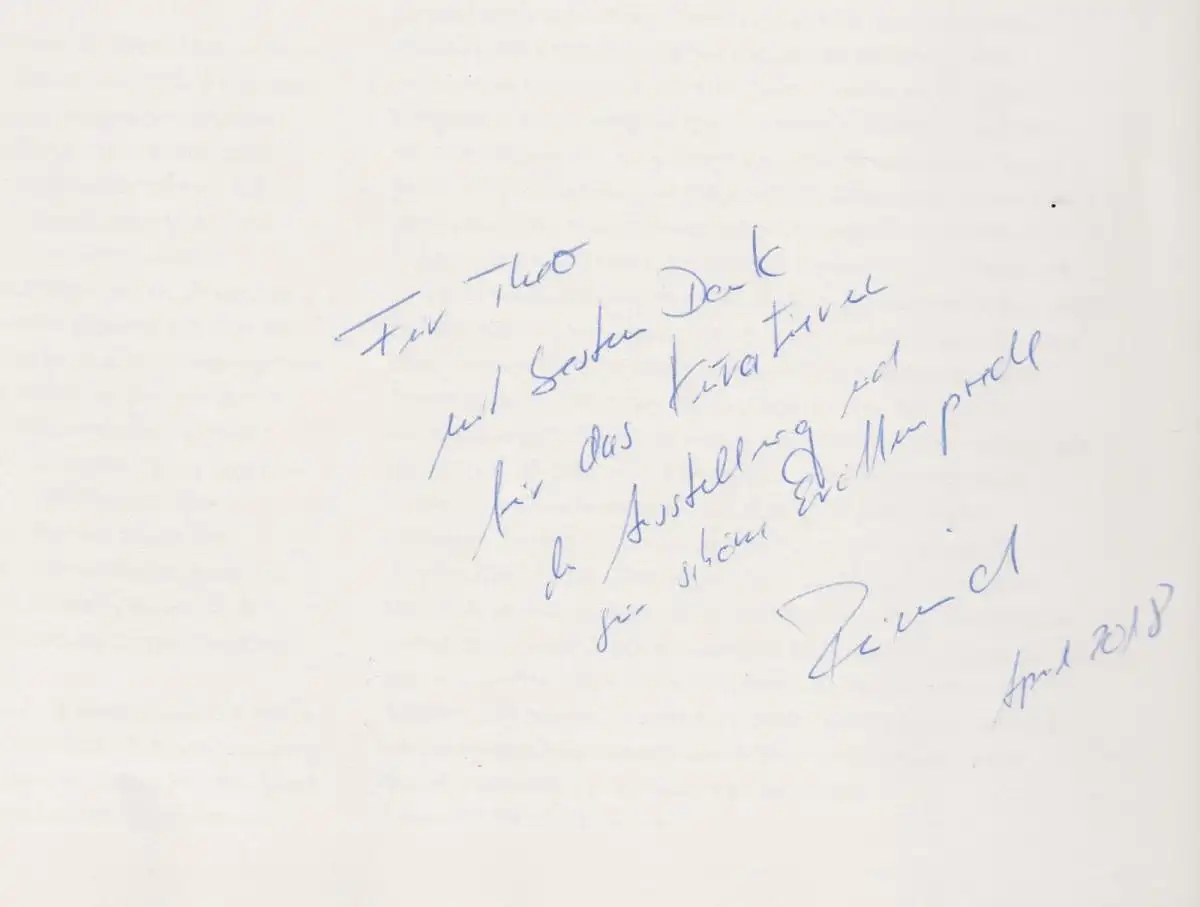 Für Theo
mit besten Dank
für das Kuratieren
der Ausstellung und
für schöne
April 2018